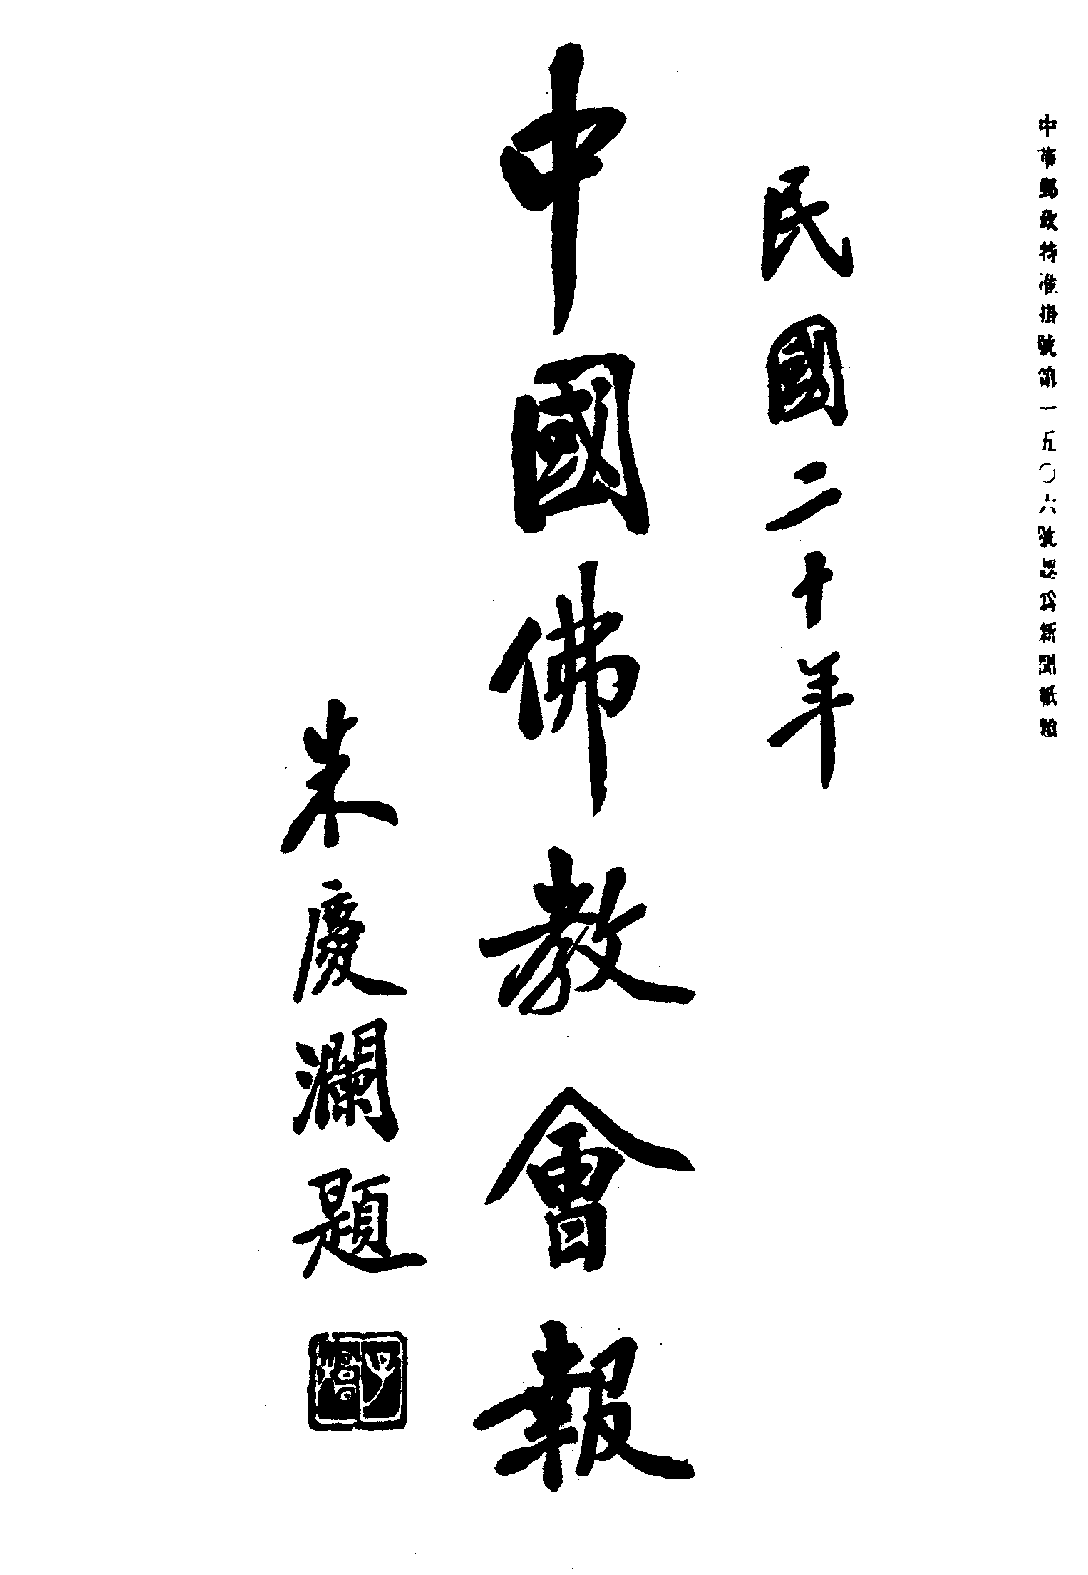 中華郵政特准掛號第一五〇六號認爲新聞紙類
民國二十年
中國佛教會報
朱慶瀾題